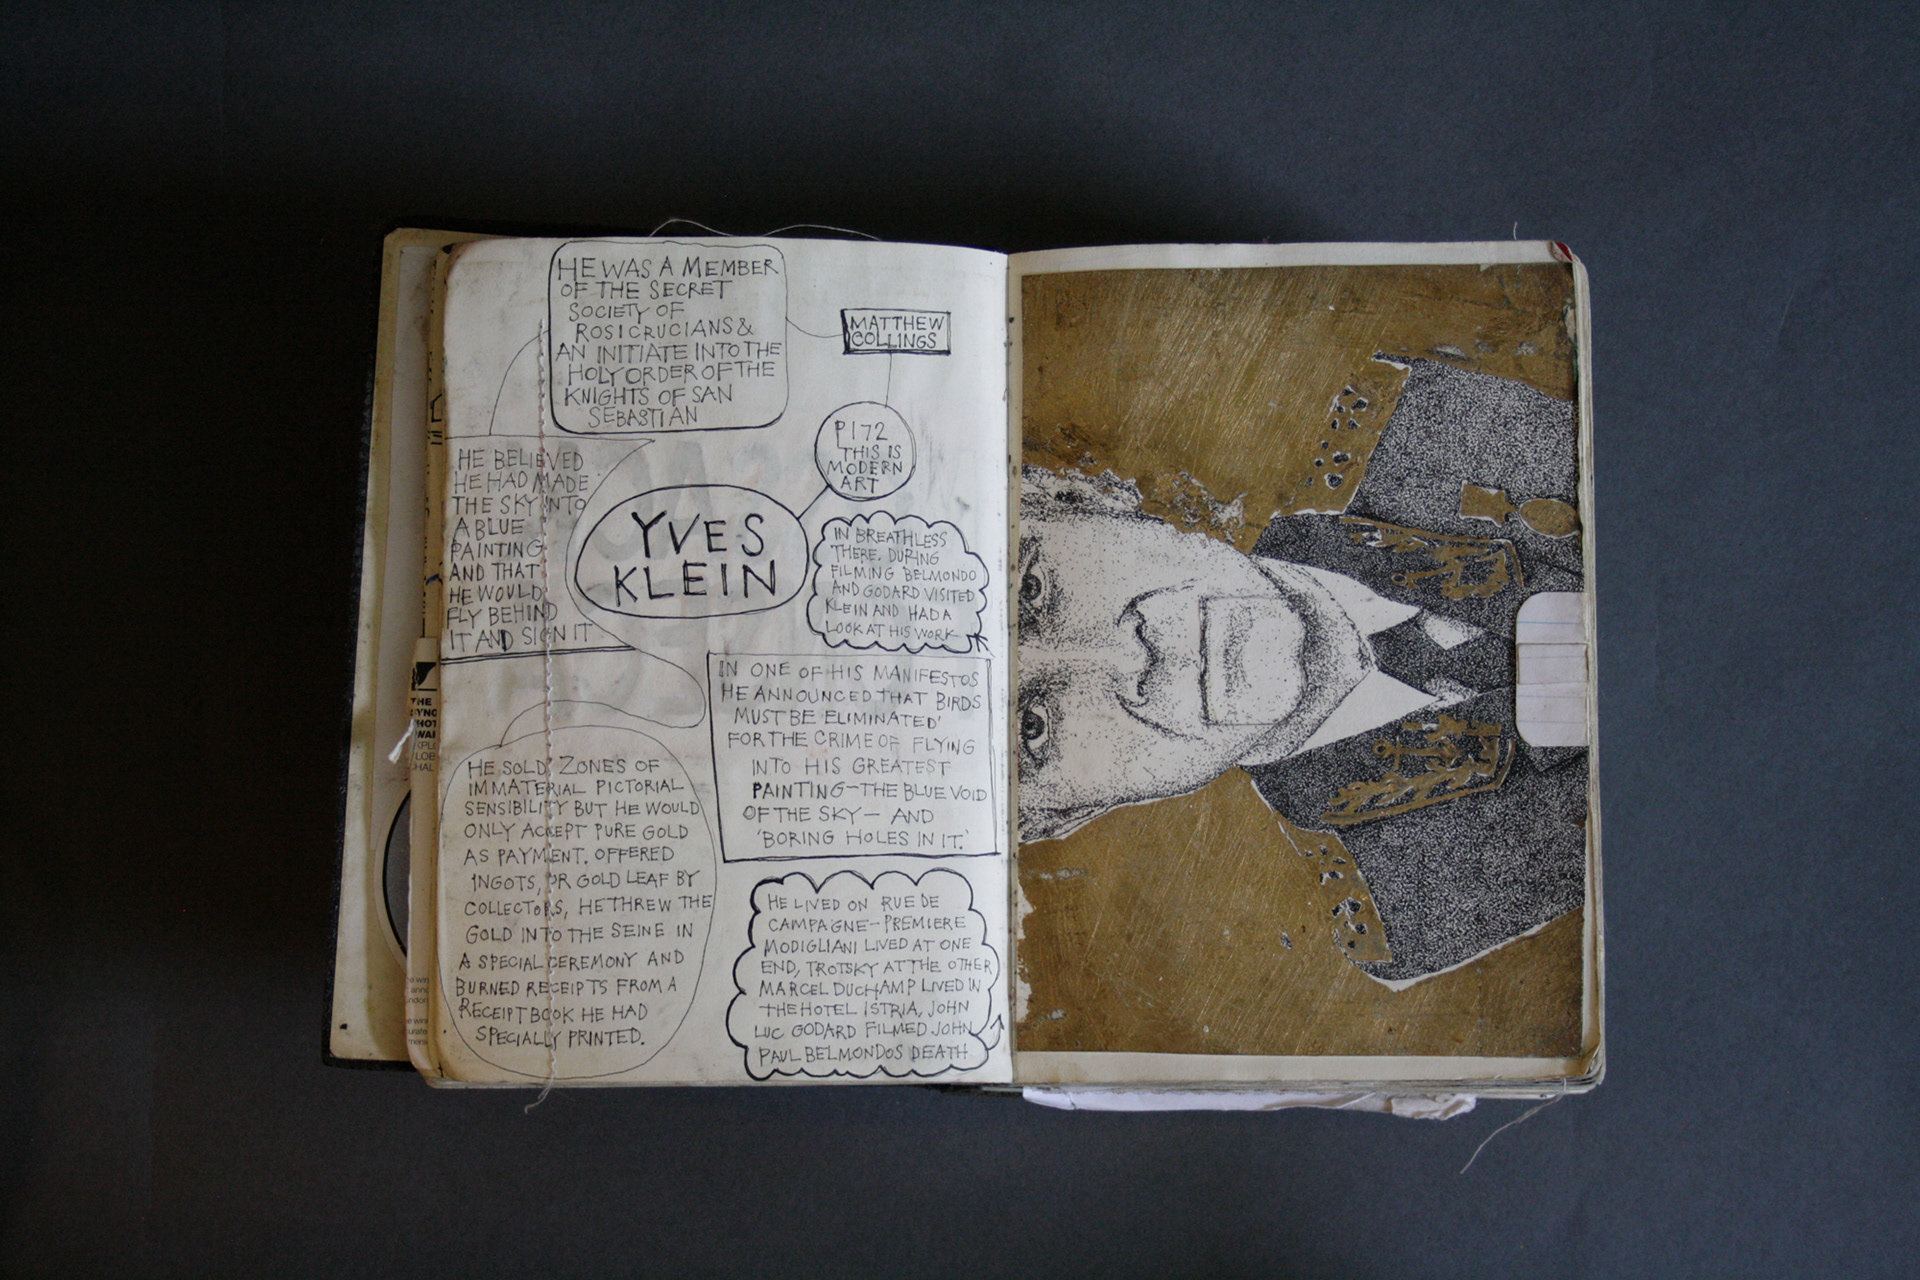 HE WAS A MEMBER
OF THE SECRET
SOCIETY OF
ROSICRUCIANS &
AN INITIATE INTO THE
HOLY ORDER OF THE
KNIGHTS OF SAN
SEBASTIAN
MATTHEW
COLLINGS
P172
THIS IS
MODERN
ART
HE BELIEVED
HE HAD MADE
THE SKY INTO
A BLUE
PAINTING
AND THAT
HE WOULD
FLY BEHIND
IT AND SIGN IT
YVES
KLEIN
IN BREATHLESS
THERE. DURING
FILMING BELMONDO
AND GODARD VISITED
KLEIN AND HAD A
LOOK AT HIS WORK
IN ONE OF HIS MANIFESTOS
HE ANNOUNCED THAT BIRDS
MUST BE ELIMINATED'
FOR THE CRIME OF FLYING
INTO HIS GREATEST
PAINTING—THE BLUE VOID
OF THE SKY — AND
'BORING HOLES IN IT.'
HE SOLD 'ZONES OF
IMMATERIAL PICTORIAL
SENSIBILITY BUT HE WOULD
ONLY ACCEPT PURE GOLD
AS PAYMENT. OFFERED
INGOTS, OR GOLD LEAF BY
COLLECTORS, HE THREW THE
GOLD INTO THE SEINE IN
A SPECIAL CEREMONY AND
BURNED RECEIPTS FROM A
RECEIPTBOOK HE HAD
SPECIALLY PRINTED.
HE LIVED ON RUE DE
CAMPAGNE—PREMIERE
MODIGLIANI LIVED AT ONE
END, TROTSKY AT THE OTHER
MARCEL DUCHAMP LIVED IN
THE HOTEL ISTRIA, JOHN
LUC GODARD FILMED JOHN
PAUL BELMONDOS DEATH
THE